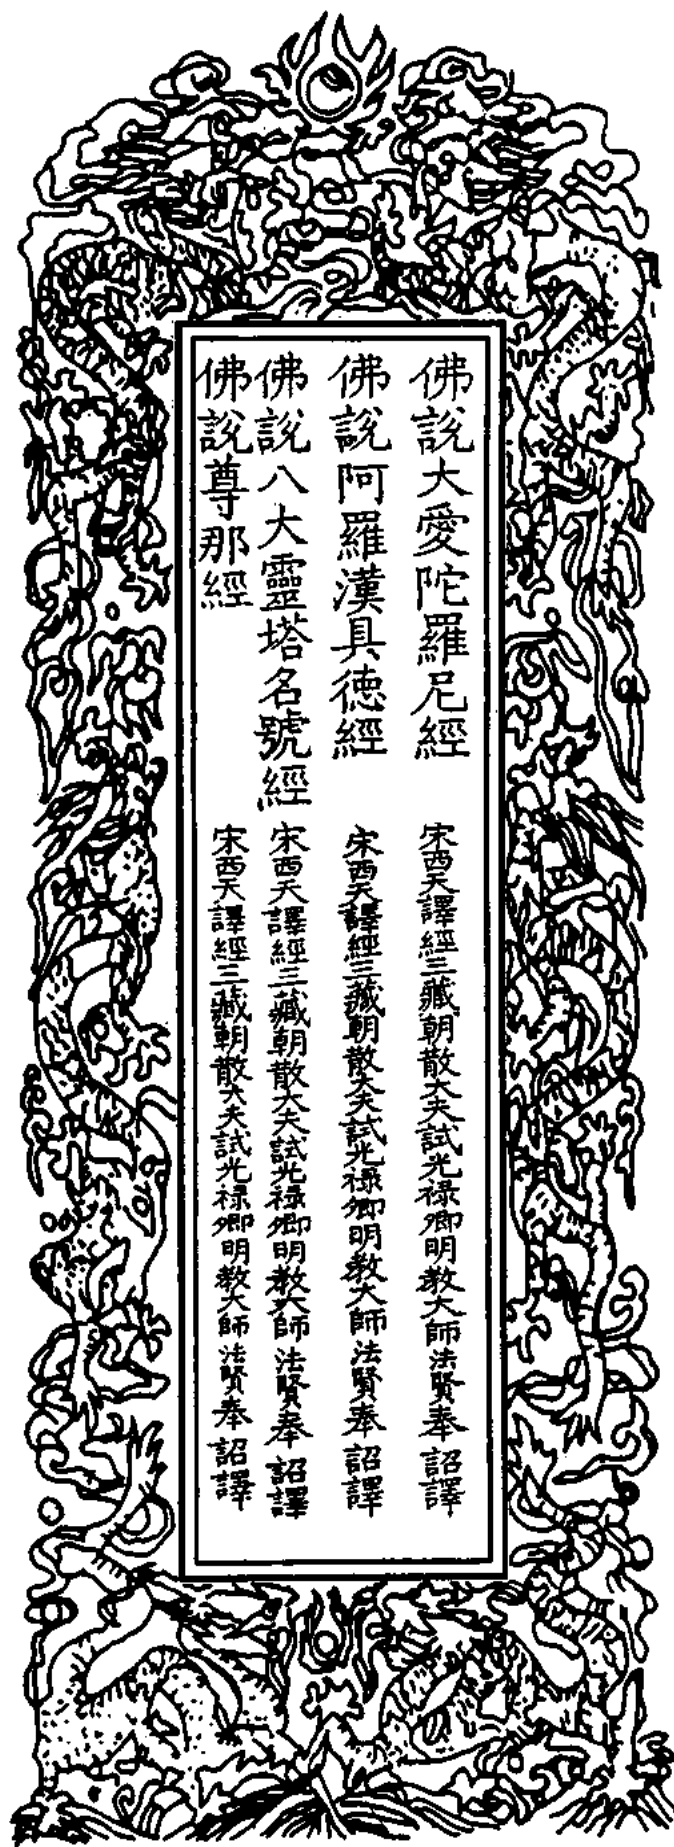 佛說大愛陀羅尼經
宋西天譯經三藏朝散大夫試光祿卿明教大師法賢奉 詔譯
佛說阿羅漢具德經
宋西天譯經三藏朝散大夫試光祿卿明教大師法賢奉 詔譯
佛說八大靈塔名號經
宋西天譯經三藏朝散大夫試光祿卿明教大師法賢奉 詔譯
佛說尊那經
宋西天譯經三藏朝散大夫試光祿卿明教大師法賢奉 詔譯